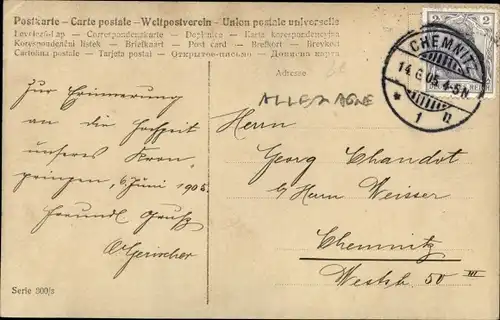 Postkarte – Carte postale – Weltpostverein – Union postale universelle
Levelező-Lap – Correspondenzkarte – Dopisnice – Karta korespondencyjna
Korespondenční lístek – Briefkaart – Post card – Brefkort – Brevkort
Cartolina postale – Tarjeta postal – Открытое письмо – Дописна карта
Adresse
2 2
CHEMNITZ
14.6.05. 4-5N.
* 1 n
ALLEMAGNE
Zur Erinnerung
an die Hochzeit
unseres Kron
prinzen, 6. Juni 1905.
Freundl Gruß
Herrn
Georg Chandot
b/ Herrn Weisser
Chemnitz
Westst. 50 III
Serie 300/3